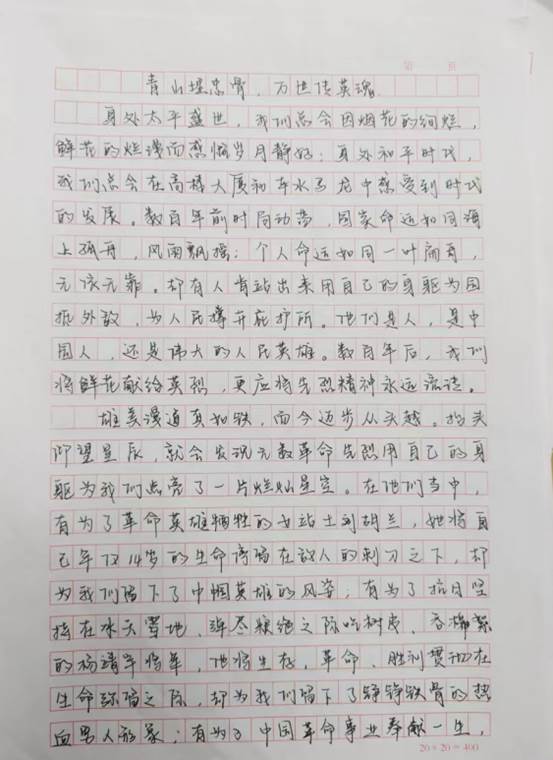 第 页
青山埋忠骨，万世传英魂
身处太平盛世，我们总会因烟花的绚烂，
鲜花的烂漫而感慨岁月静好；身处和平时代，
我们总会在高楼大厦和车水马龙中感受到时代
的发展。数百年前时局动荡，国家命运如同海
上孤舟，风雨飘摇；个人命运如同一叶扁舟，
无依无靠。却有人肯站出来用自己的身躯为国
抵外敌，为人民撑开庇护所。他们是人，是中
国人，还是伟大的人民英雄。数百年后，我们
将鲜花献给英烈，更应将先烈精神永远流传。
雄关漫道真如铁，而今迈步从头越。抬头
仰望星辰，就会发现无数革命先烈用自己的身
躯为我们点亮了一片烂灿星空。在他们当中，
有为了革命英雄牺牲的女战士刘胡兰，她将自
己年仅14岁的生命停留在敌人的刺刀之下，却
为我们留下了巾帼英雄的风姿；有为了抗日坚
持在冰天雪地，弹尽粮绝之际吃树皮，吞棉絮
的杨靖宇将军，他将生存，革命，胜利贯彻在
生命弥留之际，却为我们留下了铮铮铁骨的热
血男人形象；有为了中国革命事业奉献一生，
20×20=400